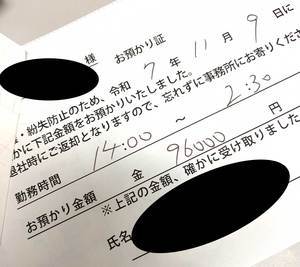 様 お預かり証
・紛失防止のため、令和 7 年 11 月 9 日に
かに下記金額をお預かりいたしました。
退社時にご返却となりますので、忘れずに事務所にお寄りくださ
勤務時間 14:00 ～ 2:30
お預かり金額 金 96000 円
※上記の金額、確かに受け取りました
氏名